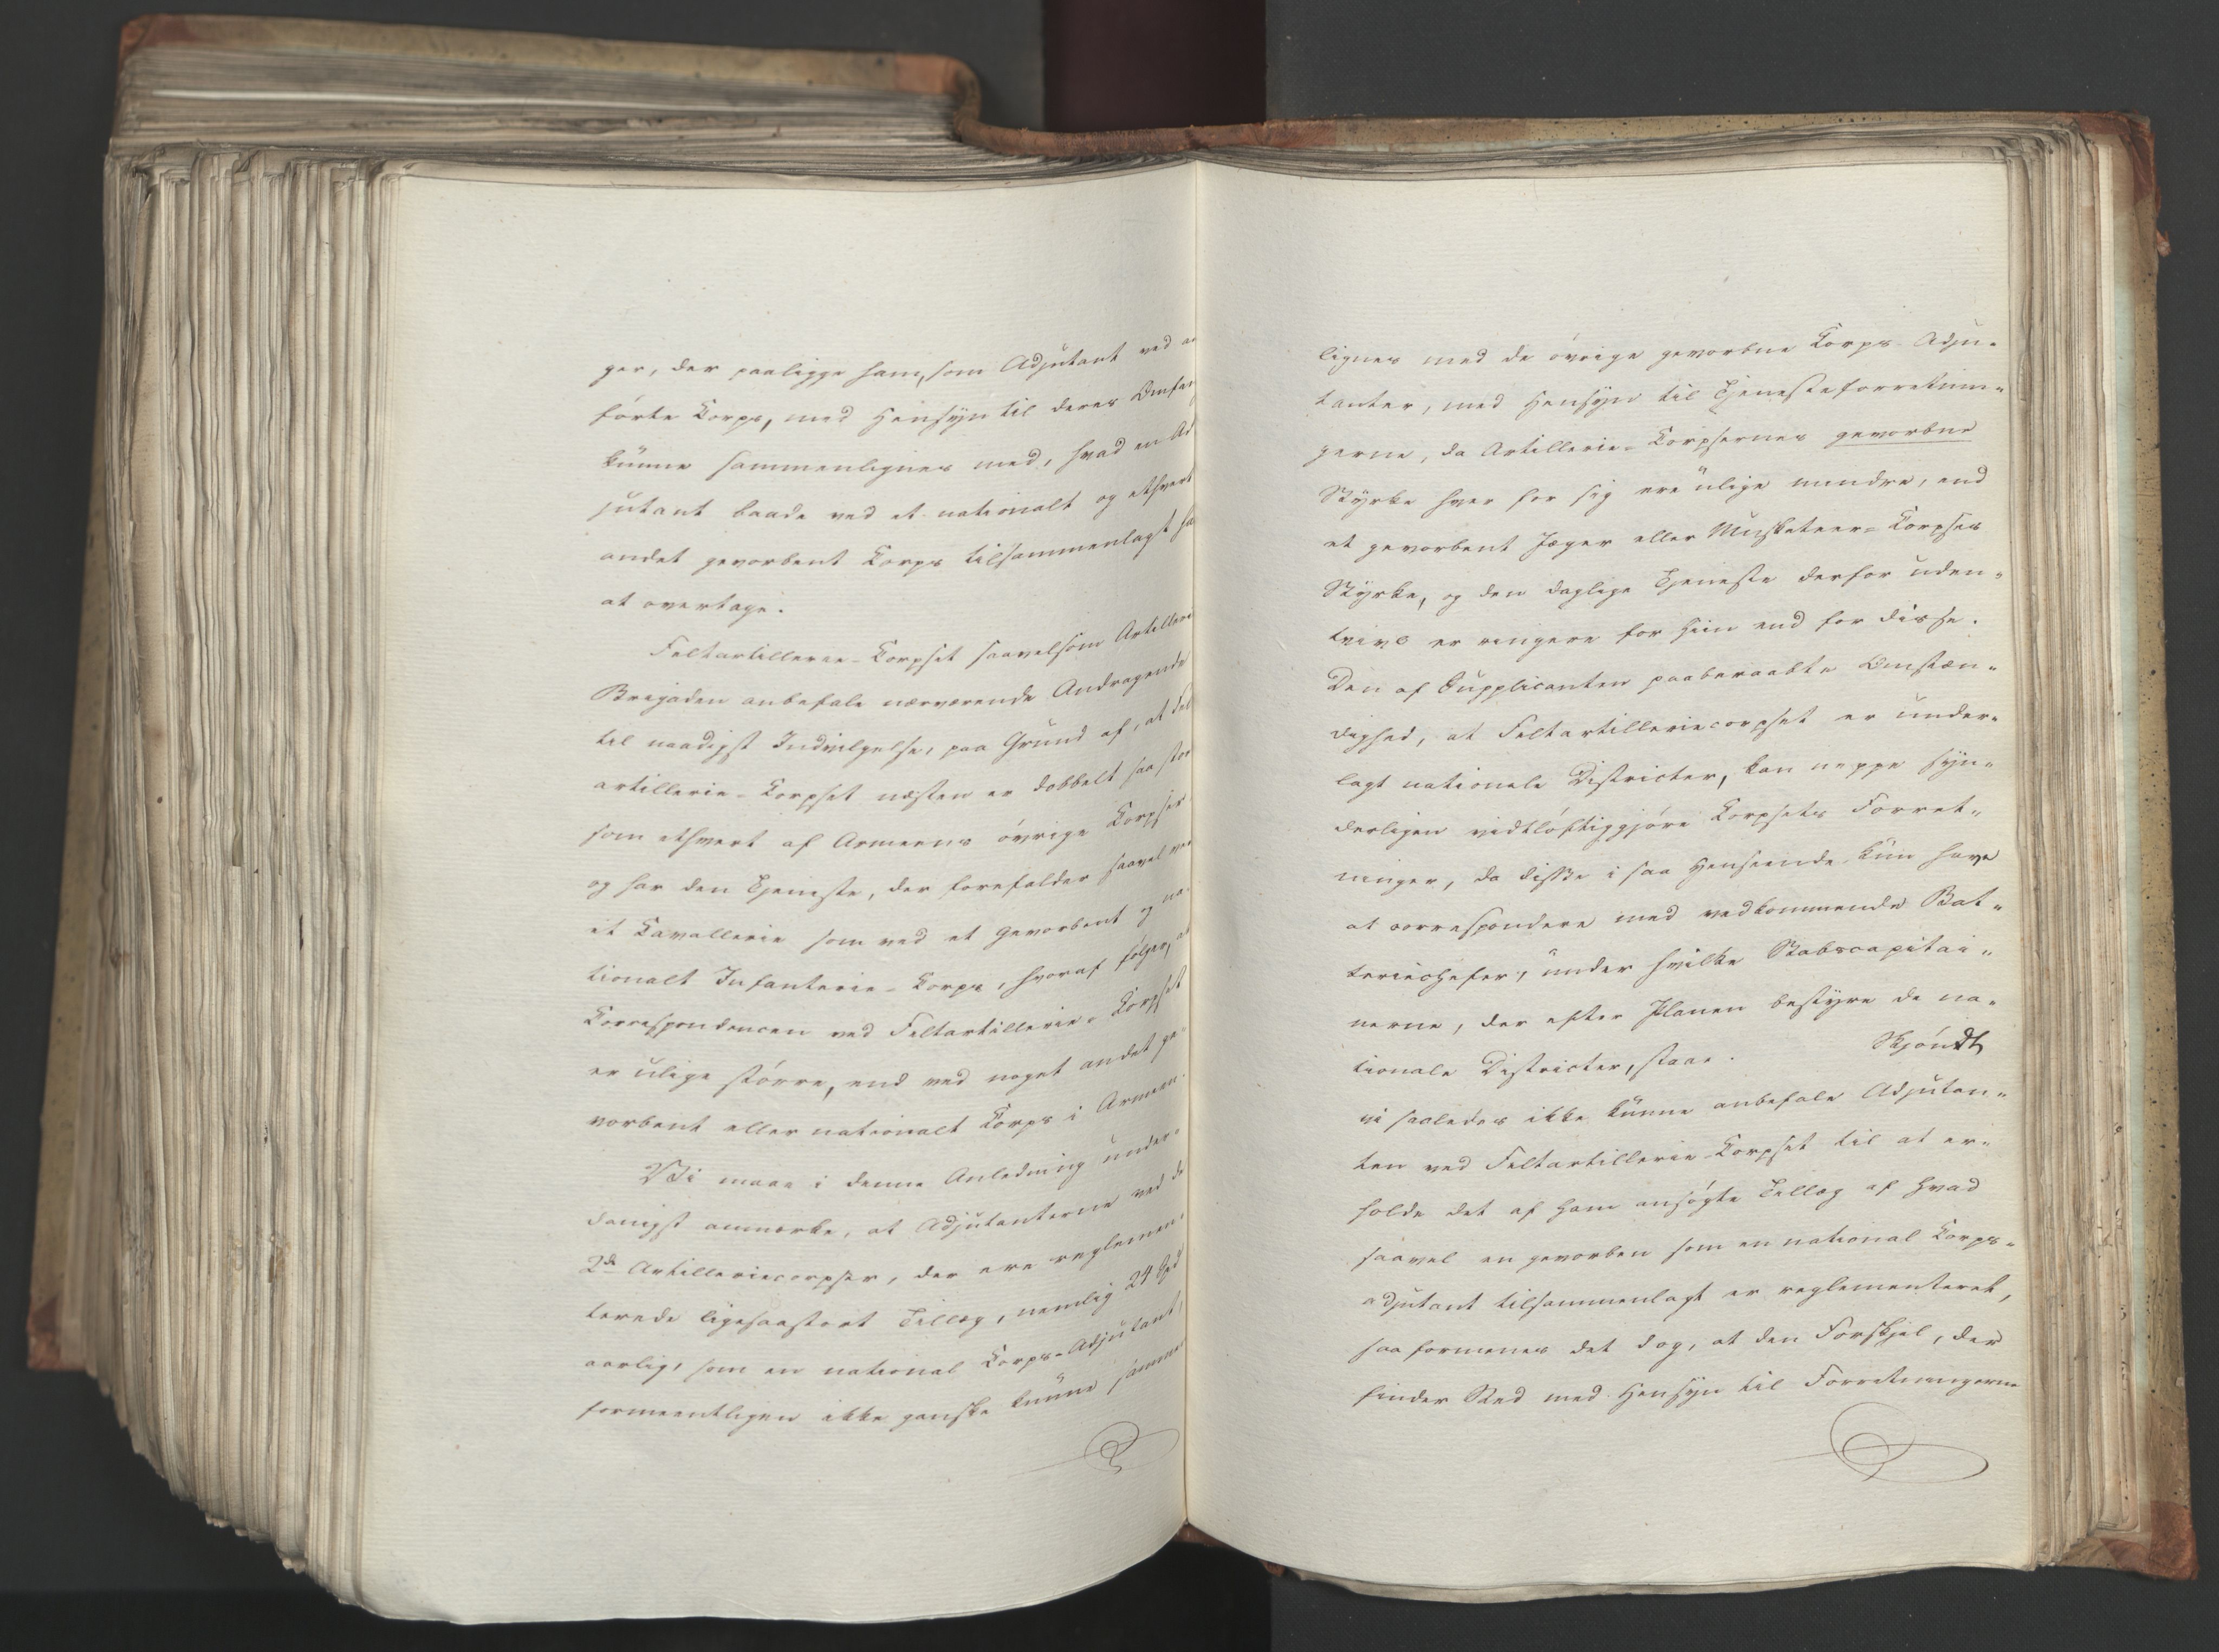 ger, der paaligge ham, som Adjutant ved an
førte Korps, med Hensyn til deres Omfan
kunne sammenlignes med, hvad en Ad
jutant baade ved et nationalt og ethvert
andet gevorbent Korps tilsammenlagt ha
at overtage.
Feltartillerie-Korpset saavelsom Artillerie
Brigaden anbefale nærværende Andragende
til naadigst Indvilgelse, paa Grund af, at Felt
artillerie-Korpset næsten er dobbelt saa stor
som ethvert af Armeens øvrige Korpser,
og har den Tjeneste, der forefalder saavel ved
et Kavallerie som ved et gevorbent og na-
tionalt Infanterie-Korps, hvoraf følger, at
Korrespondencen ved Feltartillerie-Korpset
er ulige større, end ved noget andet ge-
vorbent eller nationalt Korps i Armeen.
Vi maae i denne Anledning under-
danigst anmærke, at Adjutanterne ved de
2de Artilleriecorpser, der ere reglemen-
terede ligesaastort Tillæg, nemlig 24 Spd
aarlig, som en national Korps-Adjutant,
formeentligen ikke ganske kunne sammen
lignes med de øvrige gevorbne Korps-Adju-
tanter, med Hensyn til Tjenesteforretnin-
gerne, da Artillerie-Korpsernes gevorbne
Styrke hver for sig ere ulige mindre, end
et gevorbent Jæger eller Musketeer-Korpses
Styrke, og den daglige Tjeneste derfor uden-
tvivl er ringere for hiin end for disse.
Den af Supplicanten paaberaabte Omstæn-
dighed, at Feltartilleriecorpset er under-
lagt nationale Districter, kan neppe syn-
derligen vidtløftiggjøre Korpsets Forret-
ninger, da disse i saa Henseende kun have
at correspondere med vedkommende Bat-
teriechefer, under hvilke Stabscapitai-
nerne, der efter Planen bestyre de na-
tionale Districter, staae. Skjøndt
vi saaledes ikke kunne anbefale Adjutan-
ten ved Feltartillerie-Korpset til at er-
holde det af ham ansøgte Tillæg af hvad
saavel en gevorben som en national Korps-
adjutant tilsammenlagt er reglementeret,
saa formenes det dog, at den Forskjel, der
finder Sted med Hensyn til Forretningerne